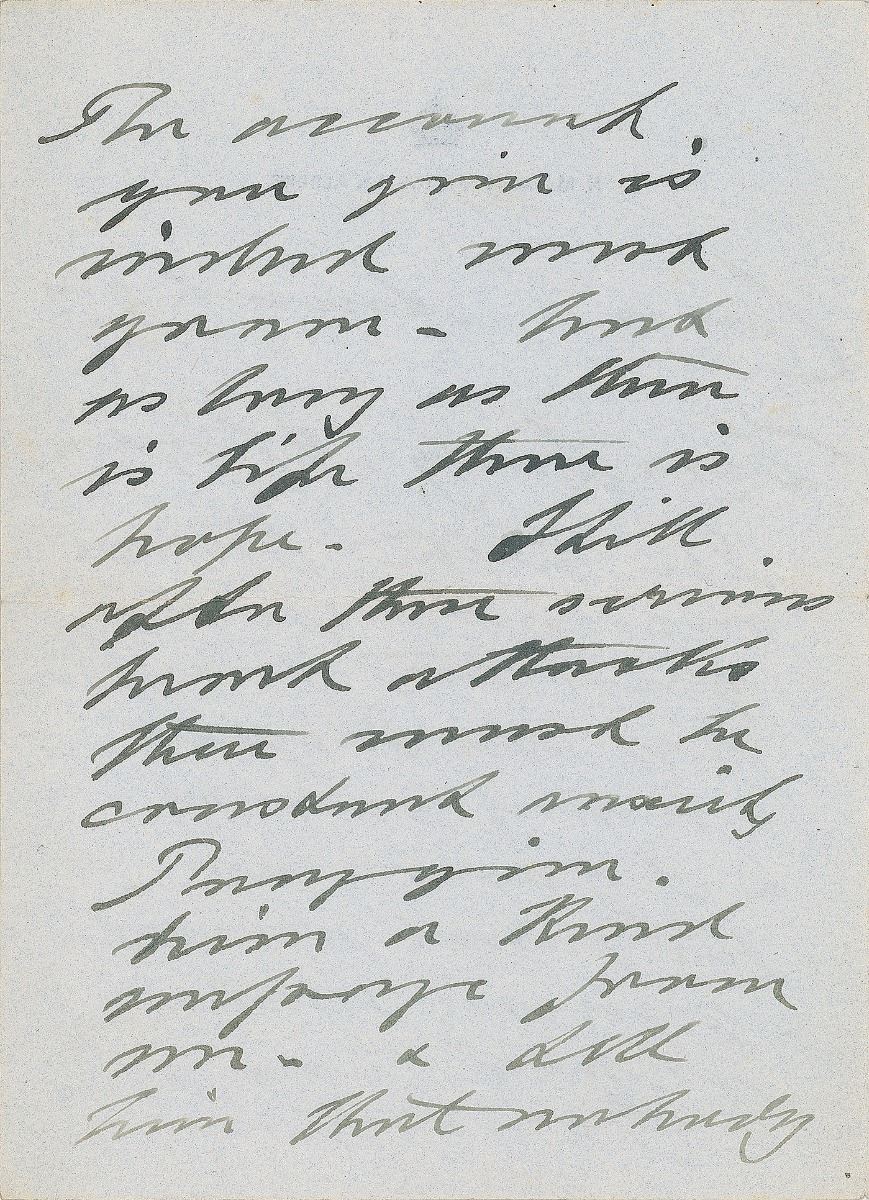 The account
you give is
indeed most
grave - but
as long as there
is life there is
hope. Still
after these serious
heart attacks
there must be
constant anxiety
Pray give
him a kind
message from
me - & tell
him that nobody